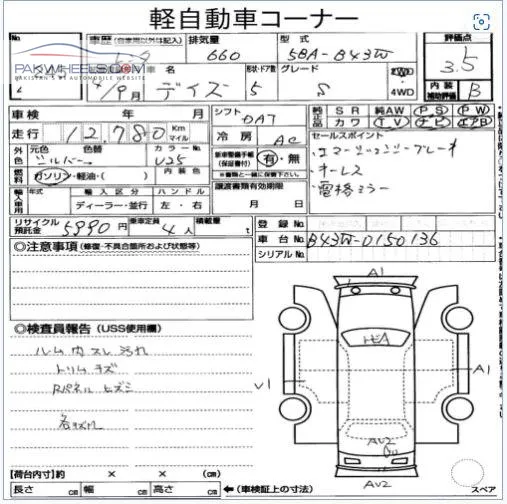 軽自動車コーナー
No.
車歴 (自家用以外は記入) 排気量 型式 評価点
660 5BA-B43W 3.5
PAKWHEELS.COM
PAKISTAN'S #1 AUTOMOBILE WEBSITE
車名 形状・ドア数 グレード 2WD 内装補助評価
/9月 デイズ 5 S 4WD B
車検 年 月 シフト DAT 純正品 SR 純AW PS PW
カワ TV ナビ エアB
走行 12,780 Km マイル 冷房 AC セールスポイント
外色 元色 色替 カラーNo. 新車整備手帳(保証書付) 有・無 ・エマージェンシーブレーキ
シルバー K25 ※書類と一緒に保管下さい。 ・キーレス
燃料 ガソリン・軽油・( ) 内装色 ・電格ミラー
輸入車用 年式 輸入区分 ハンドル 譲渡書類有効期限
ディーラー・並行 左・右 月 日
リサイクル預託金 5990円 乗車定員 4人 積載量 t 登録No.
車台No. B43W-0150136
◎注意事項 (修復・不具合箇所および状態等) シリアルNo.
A1
◎検査員報告 (USS使用欄)
ルーム内スレ汚れ
トリムキズ
Rパネルヒズミ
U1 A1
AU2
AU2
【荷台内寸】約 × × (cm)
長さ cm 幅 cm 高さ cm ←(車検証上の寸法) スペア